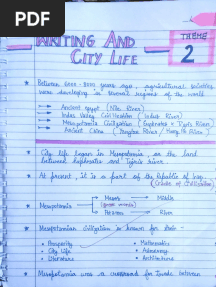 PDF
WRITING AND
CITY LIFE
THEME
2
* Between 6000-8000 years ago, agricultural societies
were developing in several regions of the world.
Ancient Egypt (Nile River)
Indus Valley Civilization (Indus River)
Mesopotamia Civilization (Euphrates & Tigris River)
Ancient China (Yangtze River / Huang He River)
* City life began in Mesopotamia, in the land
between Euphrates and Tigris river
* At present, it is a part of the Republic of Iraq.
(Cradle of Civilization)
Mesos → Middle
* Mesopotamia (greek words)
Potamos → River
* Mesopotamian civilization is known for their -
• Prosperity • Mathematics
• City Life • Astronomy
• Literature • Architecture
* Mesopotamia was a crossroad for trade between